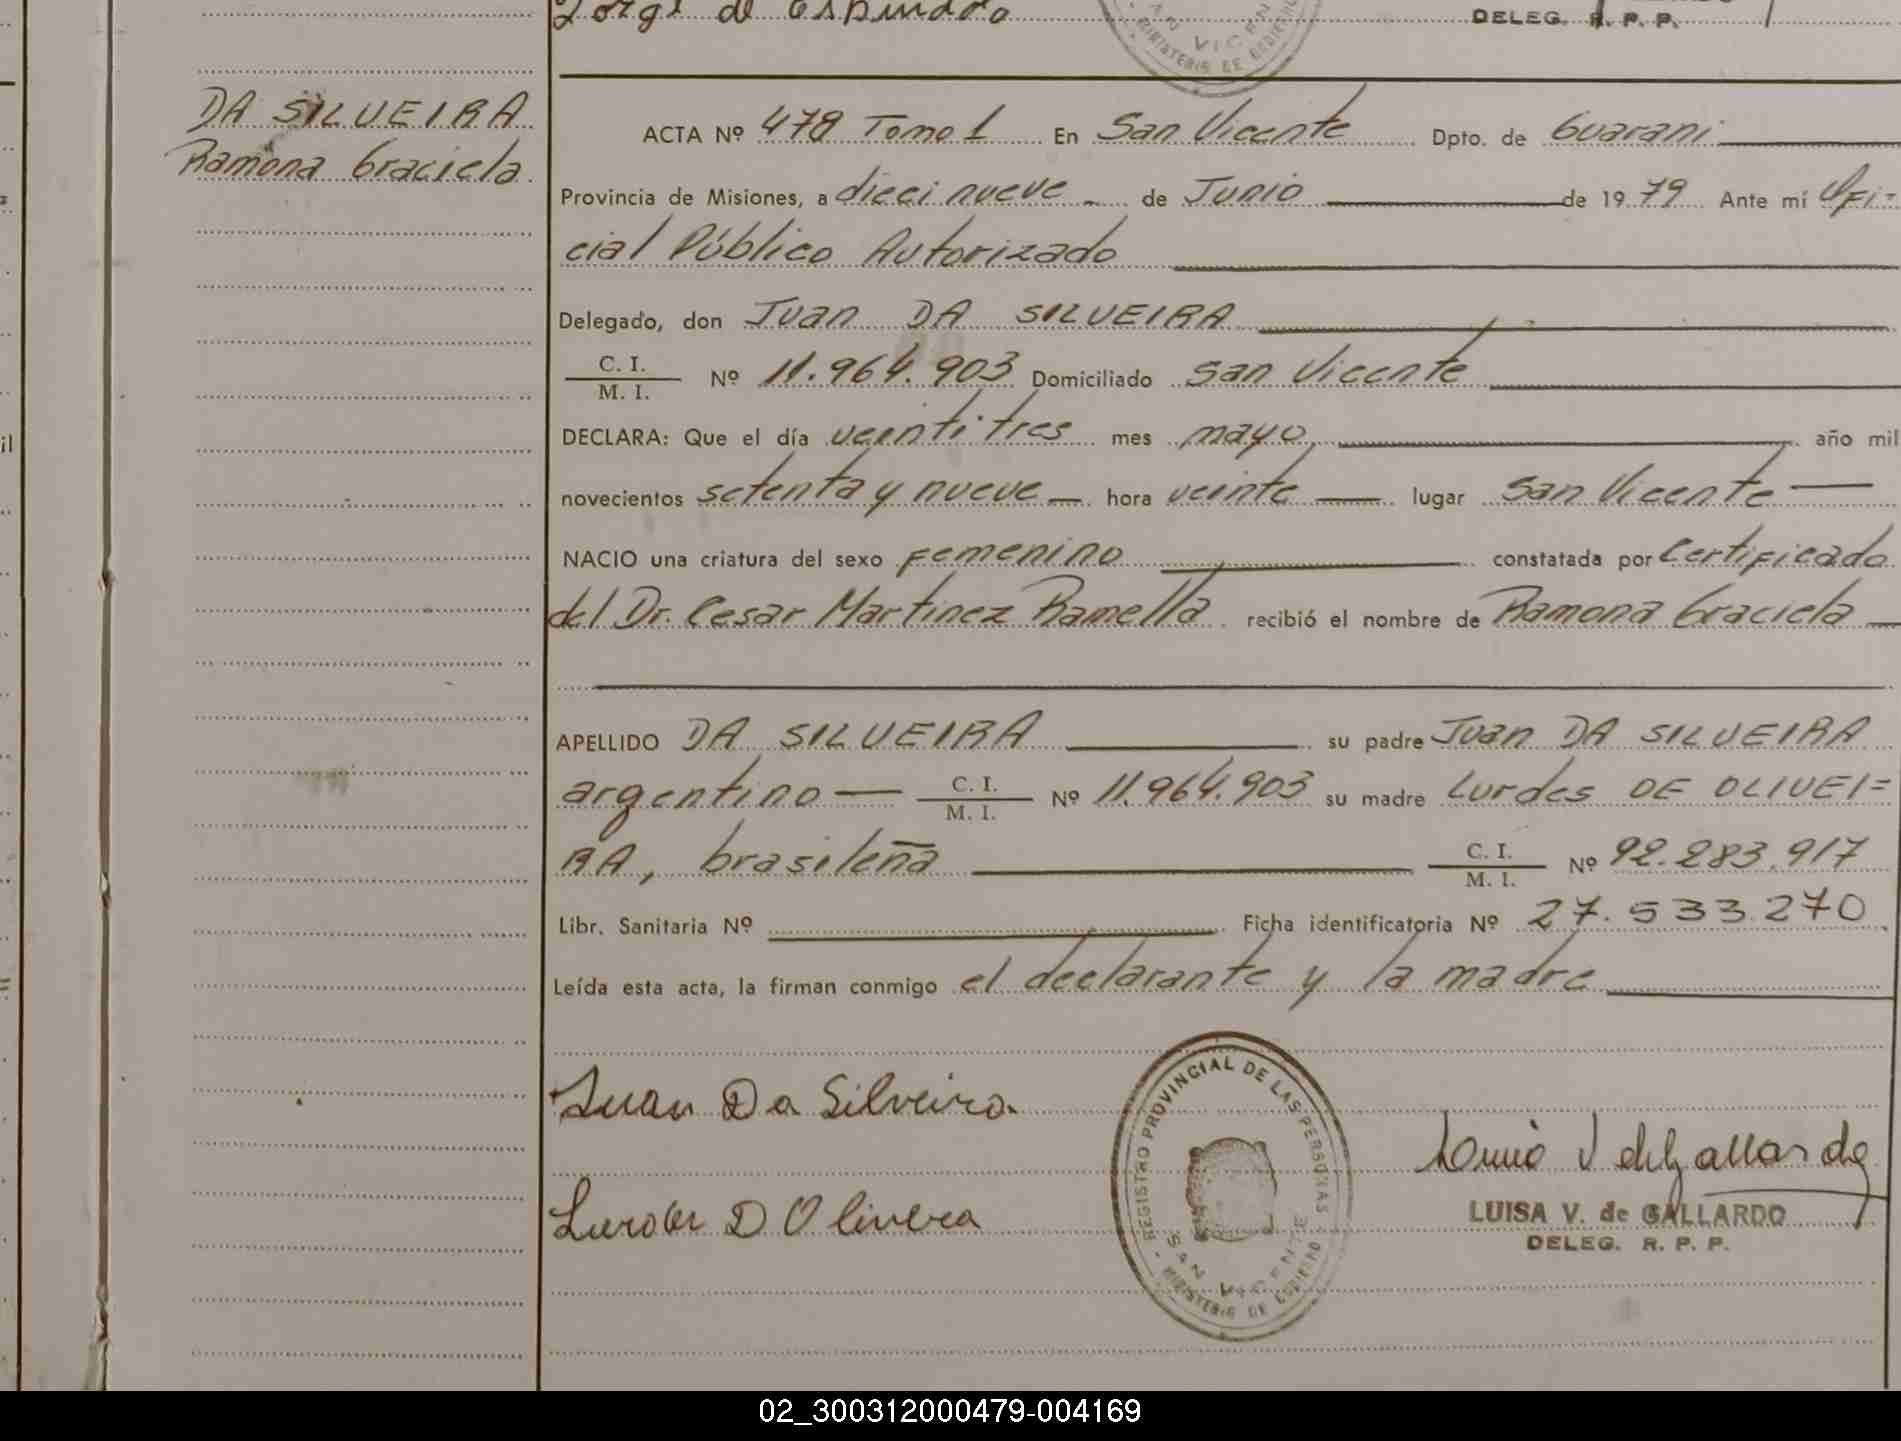 Jorge de Espindola
DELEG. R. P. P.
DA SILVEIRA
Ramona Graciela
ACTA Nº 478 Tomo 1 En San Vicente Dpto. de Guarani
Provincia de Misiones, a dieci nueve de Junio de 1979 Ante mí Ofi-
cial Público Autorizado
Delegado, don Juan DA SILVEIRA
C. I.
M. I. Nº 11.964.903 Domiciliado San Vicente
DECLARA: Que el día veinti tres mes mayo año mil
novecientos setenta y nueve hora veinte lugar San Vicente
NACIO una criatura del sexo Femenino constatada por Certificado
del Dr. Cesar Martinez Ramella recibió el nombre de Ramona Graciela
APELLIDO DA SILVEIRA su padre Juan DA SILVEIRA
argentino C. I.
M. I. Nº 11.964.903 su madre Lurdes DE OLIVEI=
RA, brasileña C. I.
M. I. Nº 92.283.917
Libr. Sanitaria Nº Ficha identificatoria Nº 27.533.270
Leída esta acta, la firman conmigo el declarante y la madre
Juan Da Silveira
REGISTRO PROVINCIAL DE LAS PERSONAS
SAN VICENTE
MINISTERIO DE GOBIERNO
Lurdes D Olivera
LUISA V. de GALLARDO
DELEG. R. P. P.
02_300312000479-004169